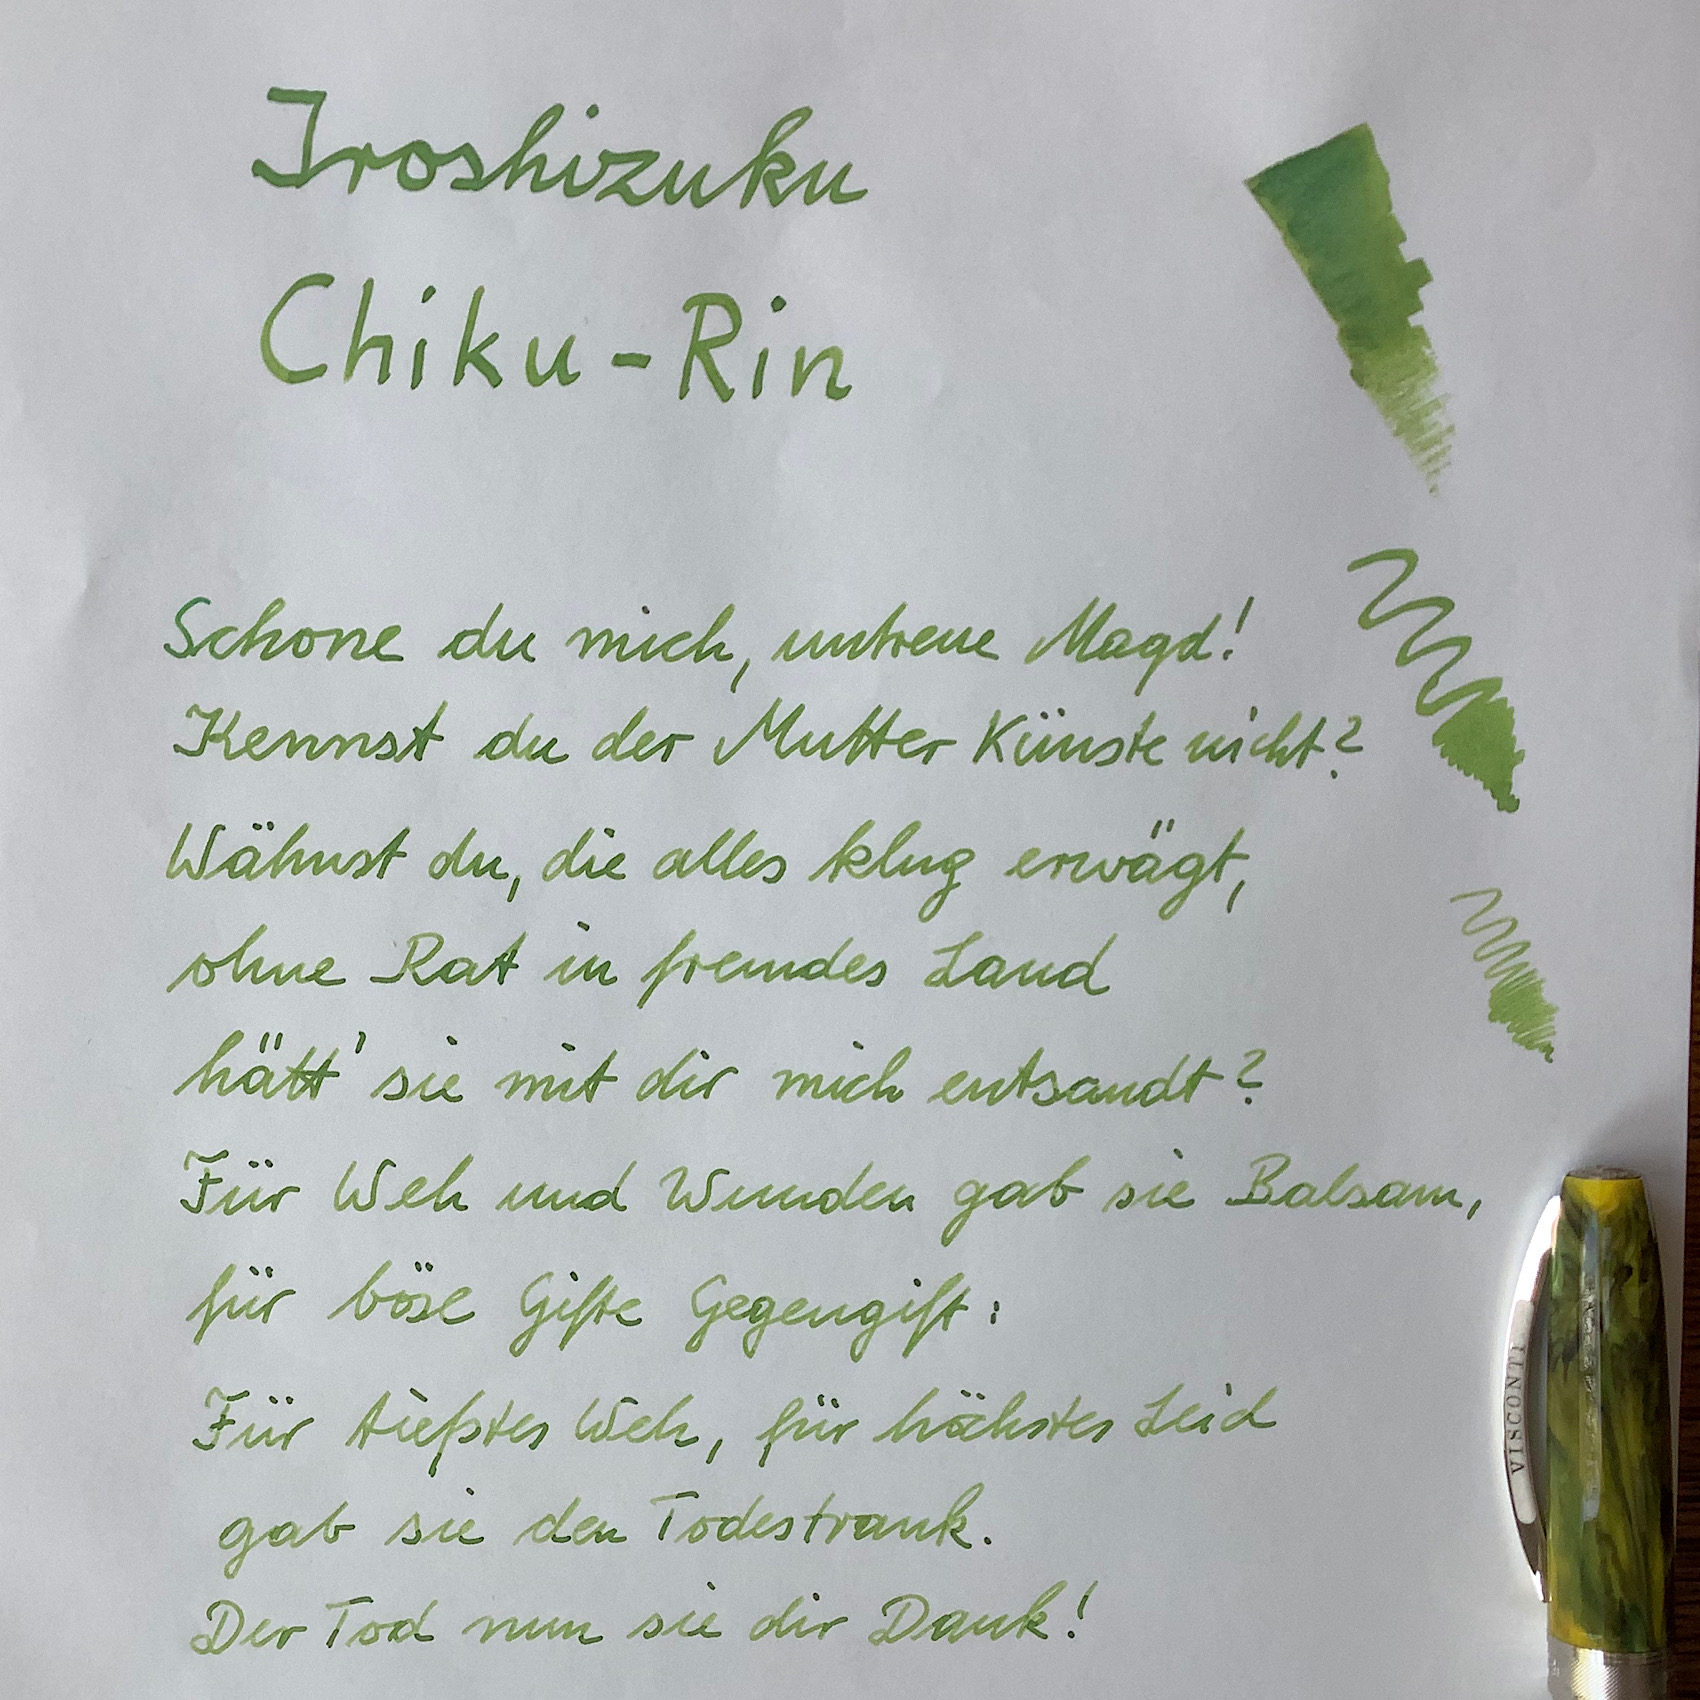 Iroshizuku
Chiku-Rin
Schone du mich, untreue Magd!
Kennst du der Mutter Künste nicht?
Wähnst du, die alles klug erwägt,
ohne Rat in fremdes Land
hätt' sie mit dir mich entsandt?
Für Weh und Wunden gab sie Balsam,
für böse Gifte Gegengift:
Für tiefstes Weh, für höchstes Leid
gab sie den Todestrank.
Der Tod nun sie dir Dank!
VISCONTI